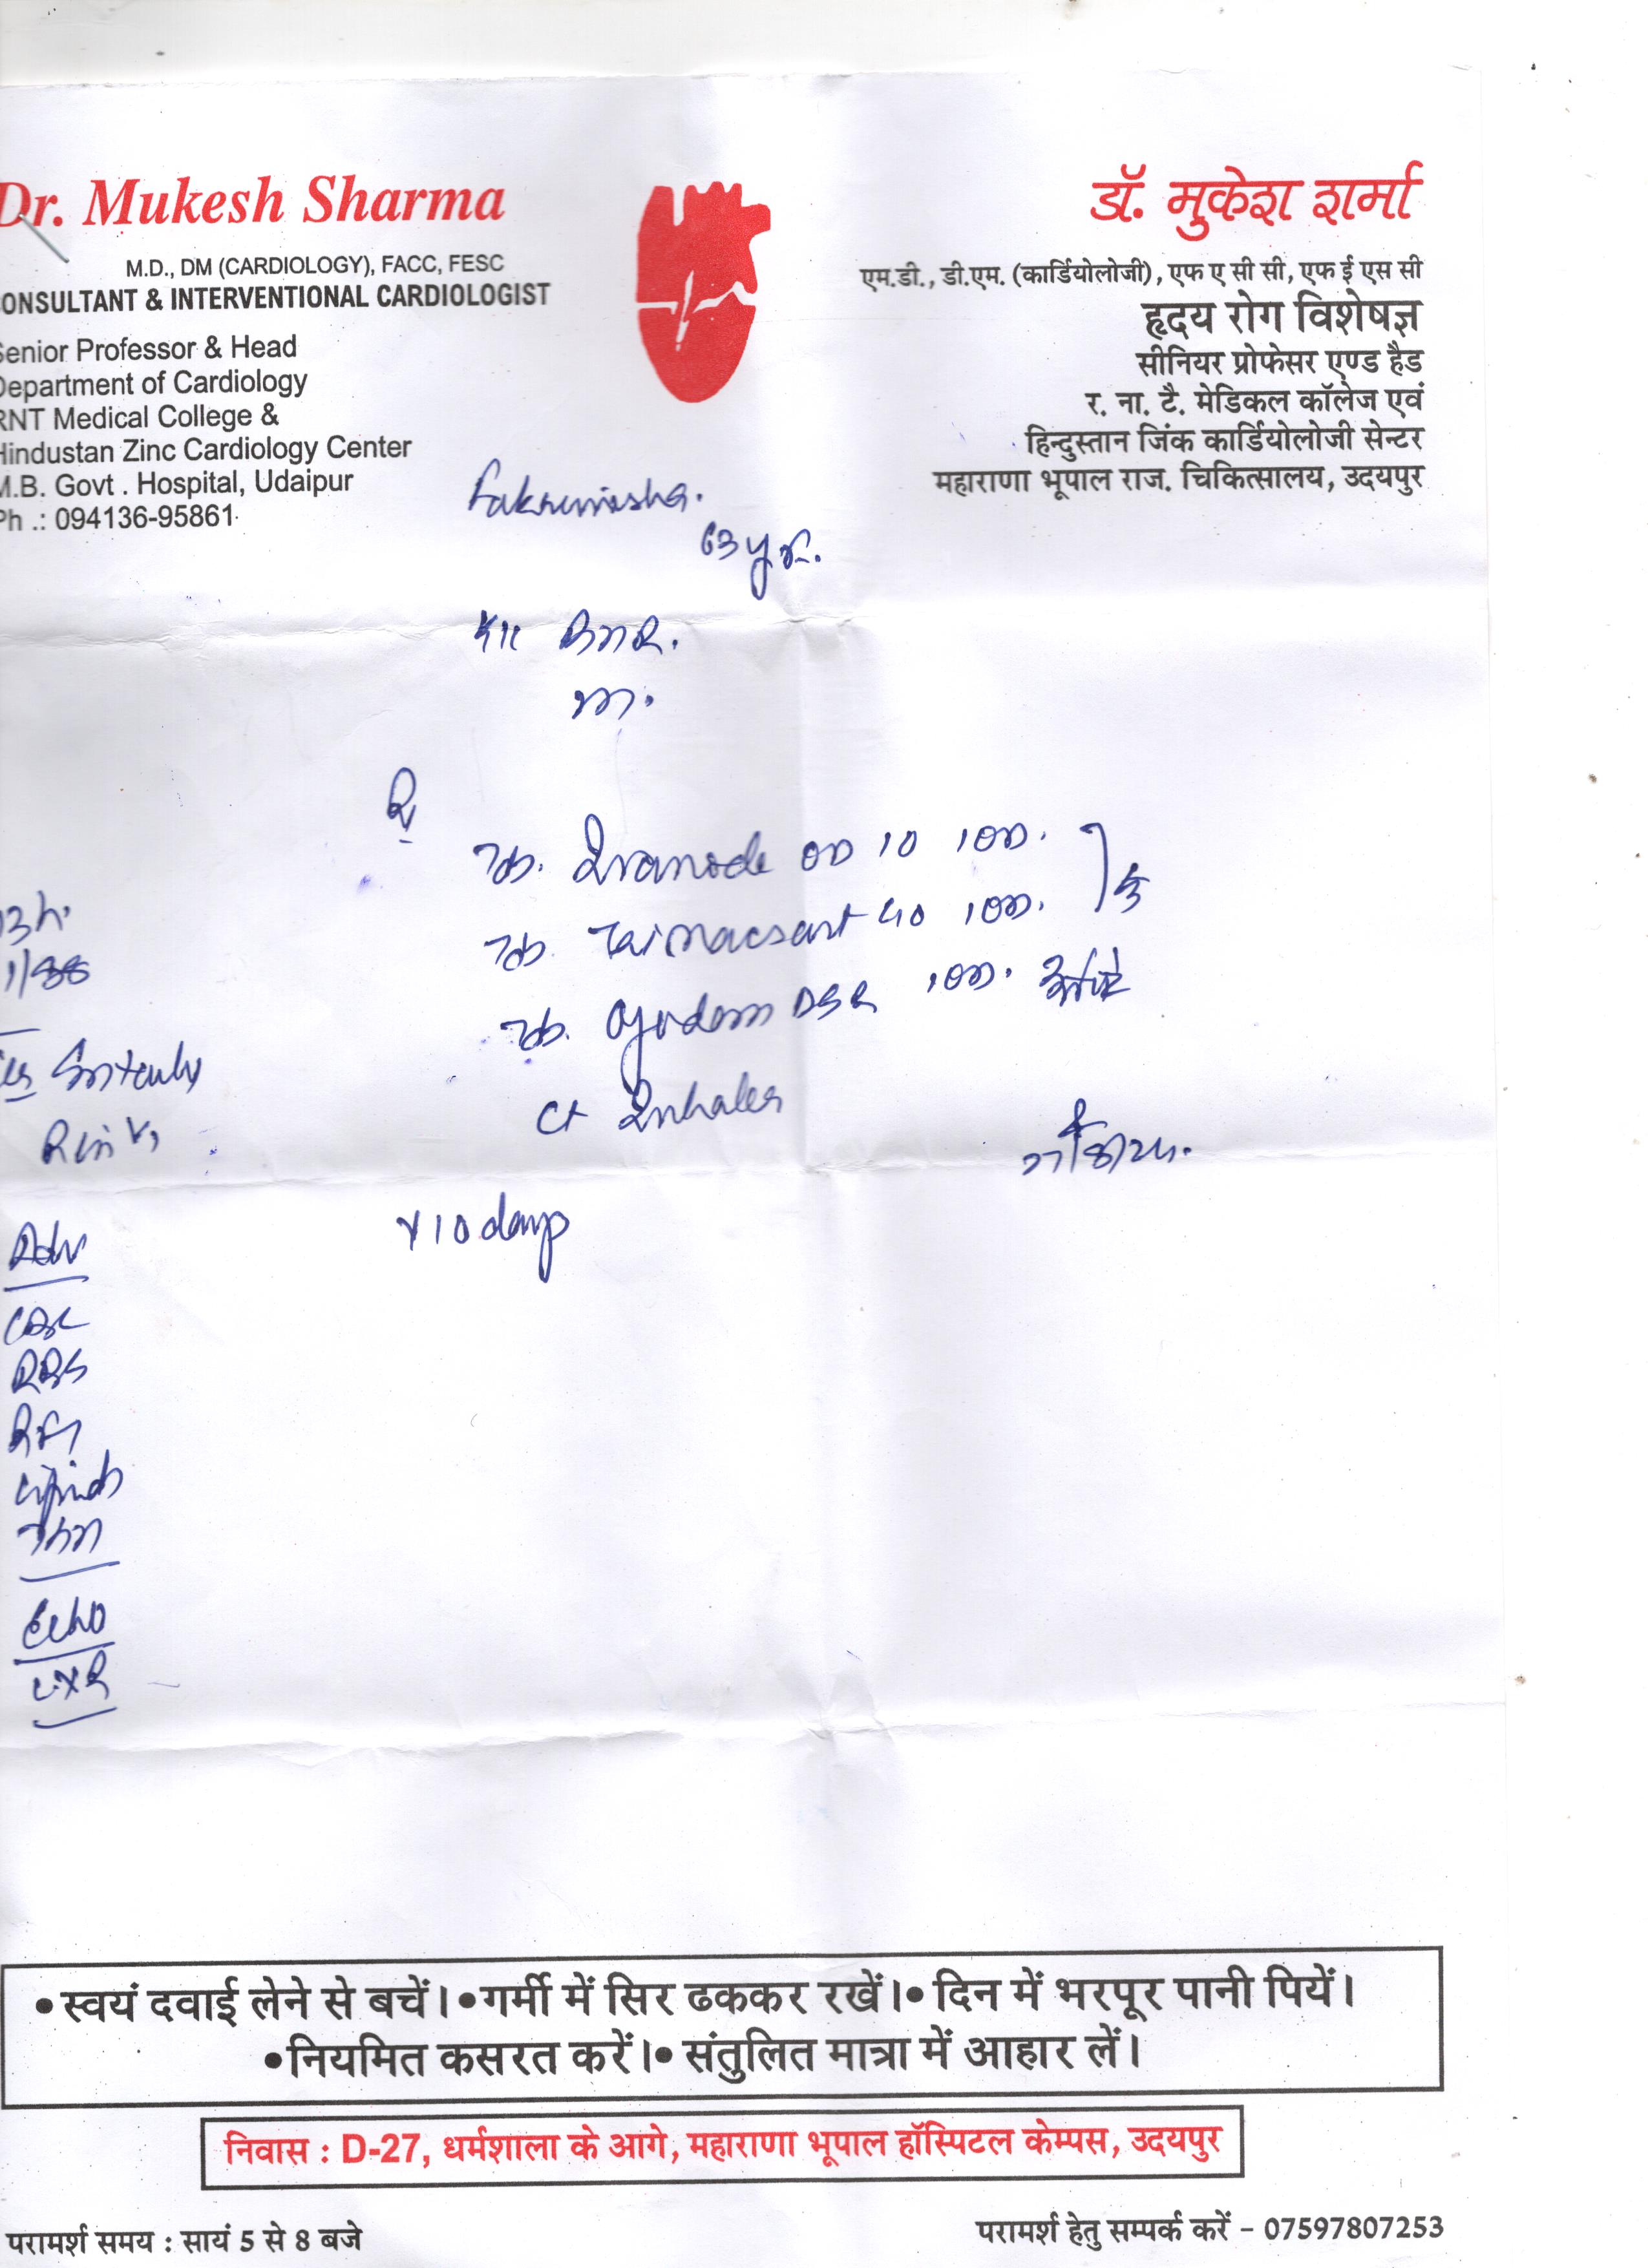 Dr. Mukesh Sharma
M.D., DM (CARDIOLOGY), FACC, FESC
ONSULTANT & INTERVENTIONAL CARDIOLOGIST
Senior Professor & Head
Department of Cardiology
RNT Medical College &
Hindustan Zinc Cardiology Center
M.B. Govt . Hospital, Udaipur
Ph .: 094136-95861
डॉ. मुकेश शर्मा
एम.डी., डी.एम. (कार्डियोलोजी), एफ ए सी सी, एफ ई एस सी
हृदय रोग विशेषज्ञ
सीनियर प्रोफेसर एण्ड हैड
र. ना. टै. मेडिकल कॉलेज एवं
हिन्दुस्तान जिंक कार्डियोलोजी सेन्टर
महाराणा भूपाल राज. चिकित्सालय, उदयपुर
63 yr.
OD 10
40
DSR
Ct Inhaler
x 10 days
Adv
CBC
RBS
RFT
Lipids
Echo
CXR
•स्वयं दवाई लेने से बचें। •गर्मी में सिर ढककर रखें। • दिन में भरपूर पानी पियें।
•नियमित कसरत करें। • संतुलित मात्रा में आहार लें।
निवास : D-27, धर्मशाला के आगे, महाराणा भूपाल हॉस्पिटल केम्पस, उदयपुर
परामर्श समय : सायं 5 से 8 बजे
परामर्श हेतु सम्पर्क करें - 07597807253